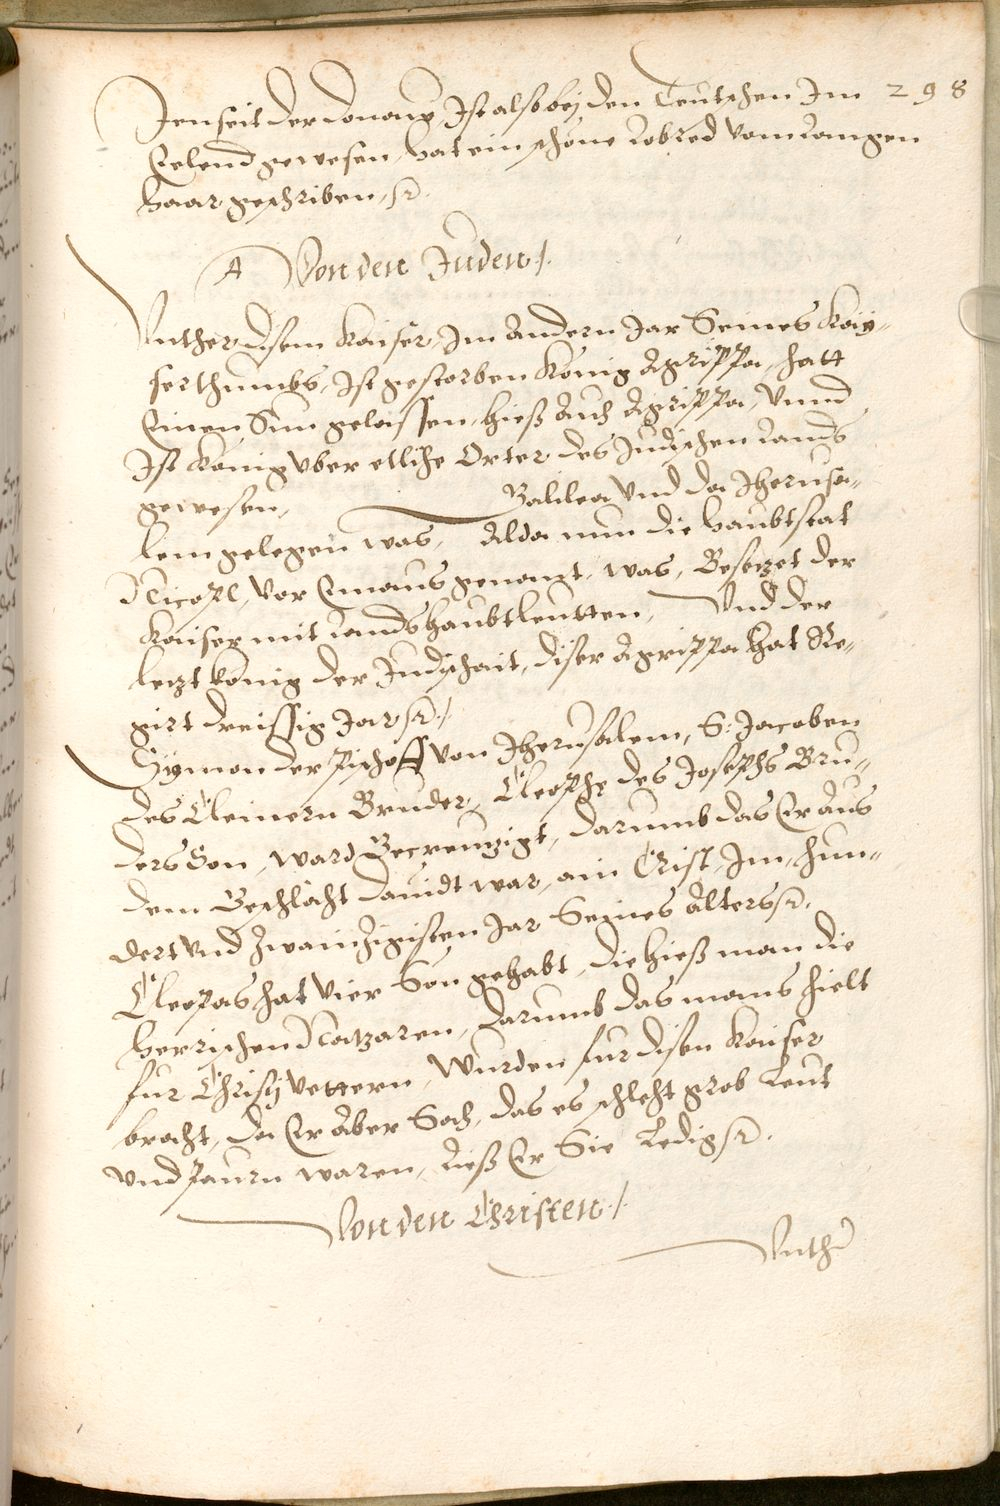 298
Jenseit der donaw Ist also bej den Teutschen Im
Eelend gewesen, hat ein schöne Lobred vom Langen
haar geschriben, etc.
A Von den Juden /.
Vnther disem Kaiser, Im andern Jar Seines Kay-
serthumbs, Ist gestorben König Agrippa, hatt
Einen Sun gelassen, hieß Auch Agrippa, Vnnd
Ist König vber etliche Orter des Judischen Lands
gewesen, Galilea Vnd da Jherusa-
lem gelegen was, Alda nun die haubtstat
Nicopl, vor Emaus genant, was, Besezet der
Kaiser mit Landshaubtleutten, Vnd der
letzt könig der Judischait, diser Agrippa hat Re-
girt dreissig Jar etc /
Symon der pischoff von Jherusalem, S: Jacoben
des Cleinern Bruder, Cleophe des Josephs Bru-
ders Son, ward Gecreuzigt, darumb das Er Aus
dem Geschlächt dauidt war, ain Crist, Im, hun-
dert vnd Zwainzigisten Jar Seines Alters etc.
Cleopas hat Vier Son gehabt, die hieß man die
herrischen Natzaren, darumb das mans hielt
fur Christj Vettern, Wurden fur disen Kaiser
bracht, da Er Aber Sach, das es schlecht grob Leut
vnd paurn waren, Ließ Er Sie Ledig etc.
Von den Christen /.
Vnther